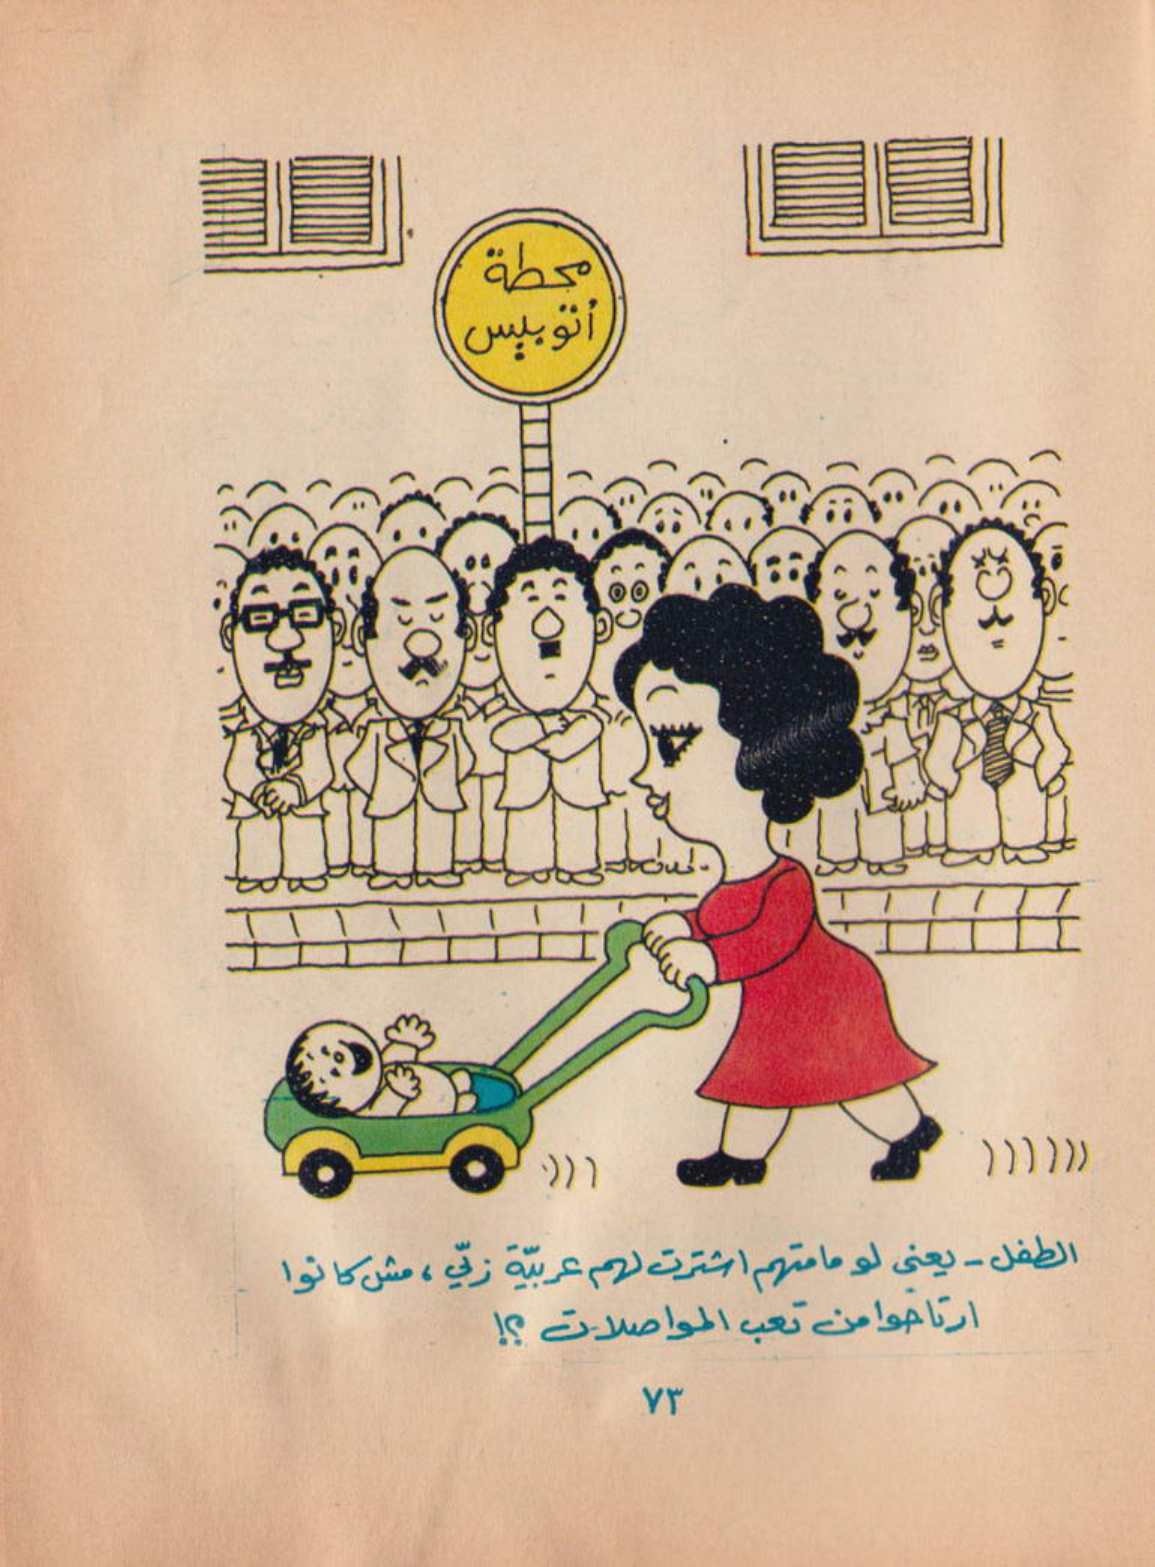 محطة
أتوبيس
الطفل - يعنى لو مامتهم اشترت لهم عربيّة زيّي ، مش كانوا
ارتاحوا من تعب المواصلات ؟!
٧٣